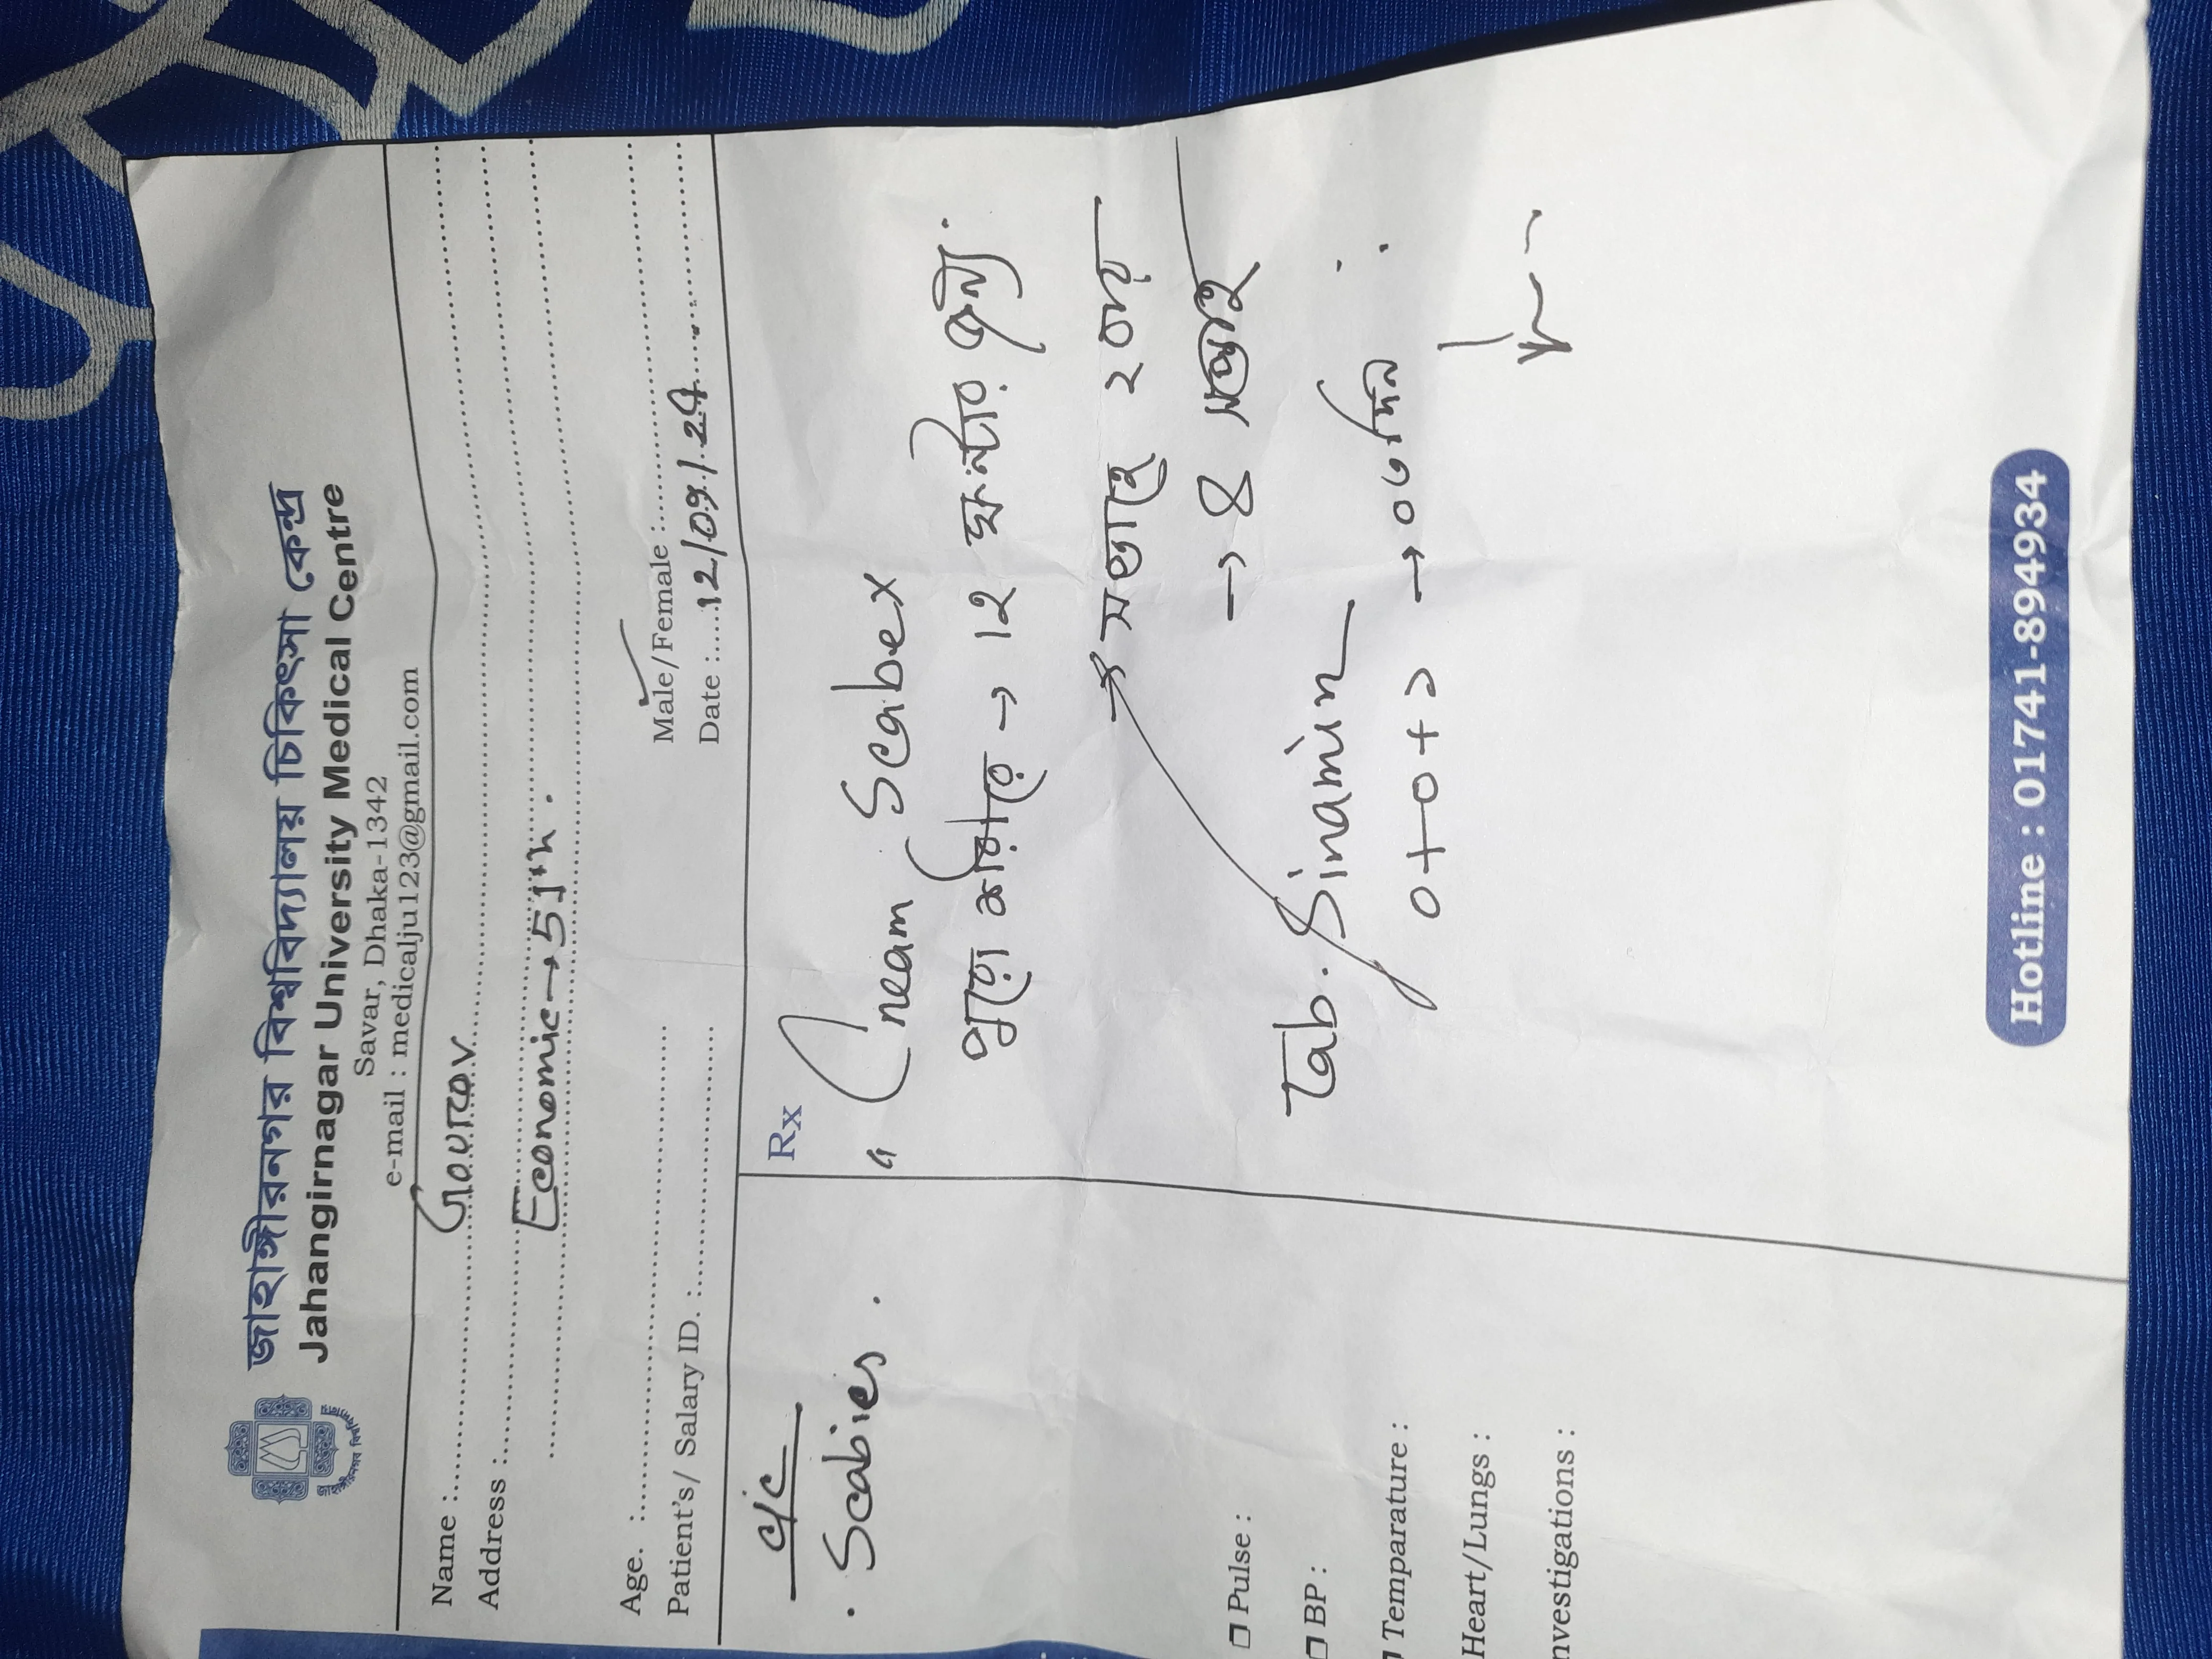 জাহাঙ্গীরনগর বিশ্ববিদ্যালয় চিকিৎসা কেন্দ্র
Jahangirnagar University Medical Centre
Savar, Dhaka-1342
e-mail : medicalju123@gmail.com
Name : Gourov
Address :
Economic → 51th.
Age. :
Male/Female :
Patient's/ Salary ID. :
Date : 12/09/24
C/C
. Scabies.
Rx
Cream Scabex
পুরো শরীরে → 12 ঘন্টার জন্য.
→ সপ্তাহে ২ বার
→ 8 সপ্তাহ
Tab. Sinamin
0+0+১ → ৩০ দিন
Pulse :
BP :
Temparature :
Heart/Lungs :
nvestigations :
Hotline : 01741-894934